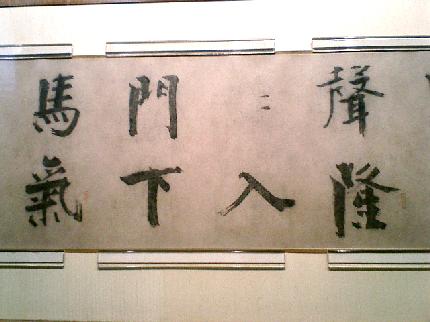 聲隆
〻入
門下
馬氣